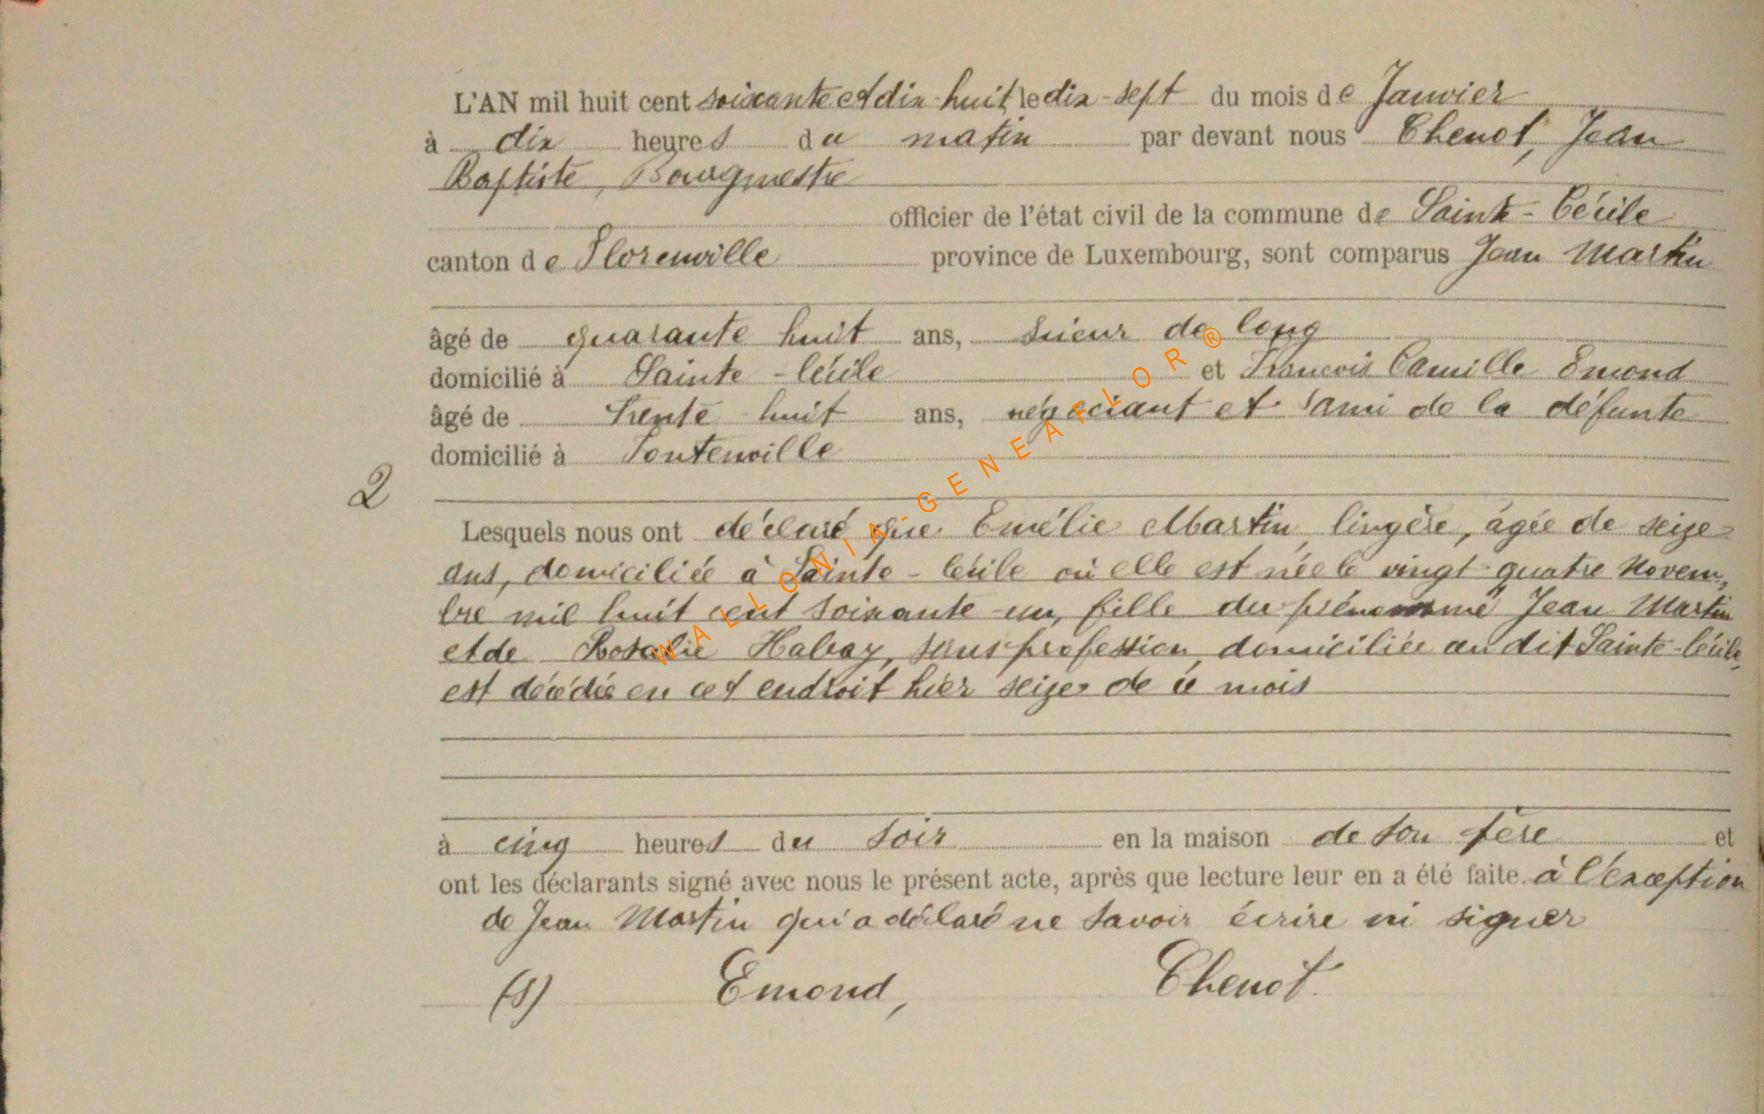 L'AN mil huit cent soixante et dix-huit, le dix-sept du mois de Janvier
à dix heures du matin par devant nous Chenot, Jean
Baptiste, Bourgmestre
officier de l'état civil de la commune de Sainte-Cécile
canton de Florenville province de Luxembourg, sont comparus Jean Martin
âgé de quarante huit ans, scieur de long
domicilié à Sainte-Cécile et Francois Camille Emond
âgé de trente huit ans, négociant et ami de la défunte
domicilié à Fontenoille
2
Lesquels nous ont déclaré que Emélie Martin, lingère, âgée de seize
ans, domiciliée à Sainte-Cécile où elle est née le vingt-quatre Novem,
bre mil huit cent soixante-un, fille du prénommé Jean Martin
et de Rosalie Habay, sans profession, domiciliée au dit Sainte-Cécile,
est décédée en cet endroit hier seize de ce mois
à cinq heures du soir en la maison de son père et
ont les déclarants signé avec nous le présent acte, après que lecture leur en a été faite. à l'exception
de Jean Martin qui a déclaré ne savoir écrire ni signer
(s) Emond, Chenot.
WALLONIA-GENEAFLOR®